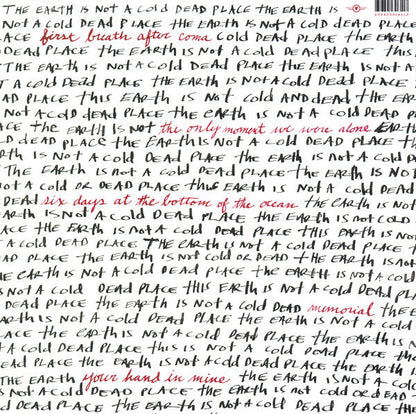 THE EARTH IS NOT A COLD DEAD PLACE THE EARTH IS
NOT A COLD DEAD PLACE THE EARTH IS NOT A COLD DEAD PLAC
ACE first breath after coma COLD DEAD PLACE THE EARTH
DEAD PLACE THE EARTH IS NOT A COLD DEAD PLACE THIS
THE EARTH IS NOT A COLD DEAD PLACE THE EARTH IS NOT
T A COLD DEAD PLACE THE EARTH IS NOT A COLD DEAD PLAC
AD PLACE THIS EARTH IS NOT COLD AND DEAD THE EAR
NOT A COLD DEAD PLACE THE EARTH IS NOT A COLD DEAD P
ACE THE EARTH IS NOT the only moment we were alone EARTH
LD DEAD PLACE THE EARTH IS NOT A COLD DEAD PLACE TH
RTH IS NOT A COLD DEAD PLACE THE EARTH IS NOT A COLD P
THE EARTH IS NOT A COLD DEAD PLACE THE EARTH IS NO
NOT A COLD OR DEAD PLACE THIS EARTH IS NOT A COLD D
DEAD six days at the bottom of the ocean THE EARTH IS NO
ARTH IS NOT A COLD DEAD PLACE THE EARTH IS NOT COLD
ACE THE EARTH IS NOT A COLD DEAD PLACE THIS EARTH IS N
T A COLD DEAD PLACE THE EARTH IS NOT A COLD DEAD PLACE
AD PLACE THE EARTH IS NOT COLD OR DEAD THE EARTH IS
HE EARTH IS NOT A COLD DEAD PLACE THE EARTH IS NOT A COLD
IS NOT A COLD DEAD PLACE THIS EARTH IS NOT A COLD DEAD P
DEAD PLACE THE EARTH IS NOT A COLD DEAD memorial THE E
EARTH IS NOT A COLD DEAD PLACE THE EARTH IS NOT A COLD
ACE THE EARTH IS NOT A COLD DEAD PLACE THE EARTH IS N
T A COLD DEAD PLACE THIS IS NOT A COLD DEAD PLACE THE
EAD PLACE THE EARTH IS NOT A COLD DEAD PLACE THE EARTH
THE EARTH your hand in mine THE EARTH IS NOT A CO
IS NOT A COLD DEAD PLACE THE EARTH IS NOT COLD OR DEA
DEAD PLACE THE EARTH IS NOT A COLD DEAD PLACE THE EAR